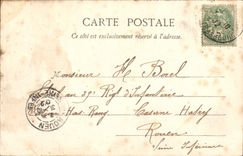 CARTE POSTALE
Ce côté est exclusivement réservé à l'adresse.
Monsieur H. Borel
au 39e Rgt d'Infanterie
Caserne Hatry
Rouen
Seine Inférieure
ROUEN